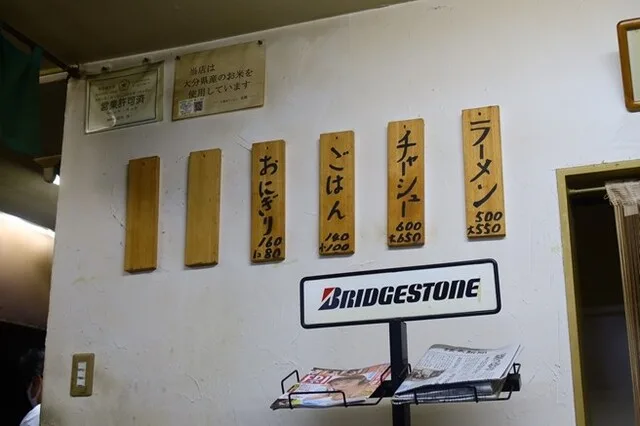 営業許可済
当店は
大分県産のお米を
使用しています
ラーメン
500
大550
チャーシュー
600
大650
ごはん
140
おにぎり
160
1コ80
BRIDGESTONE